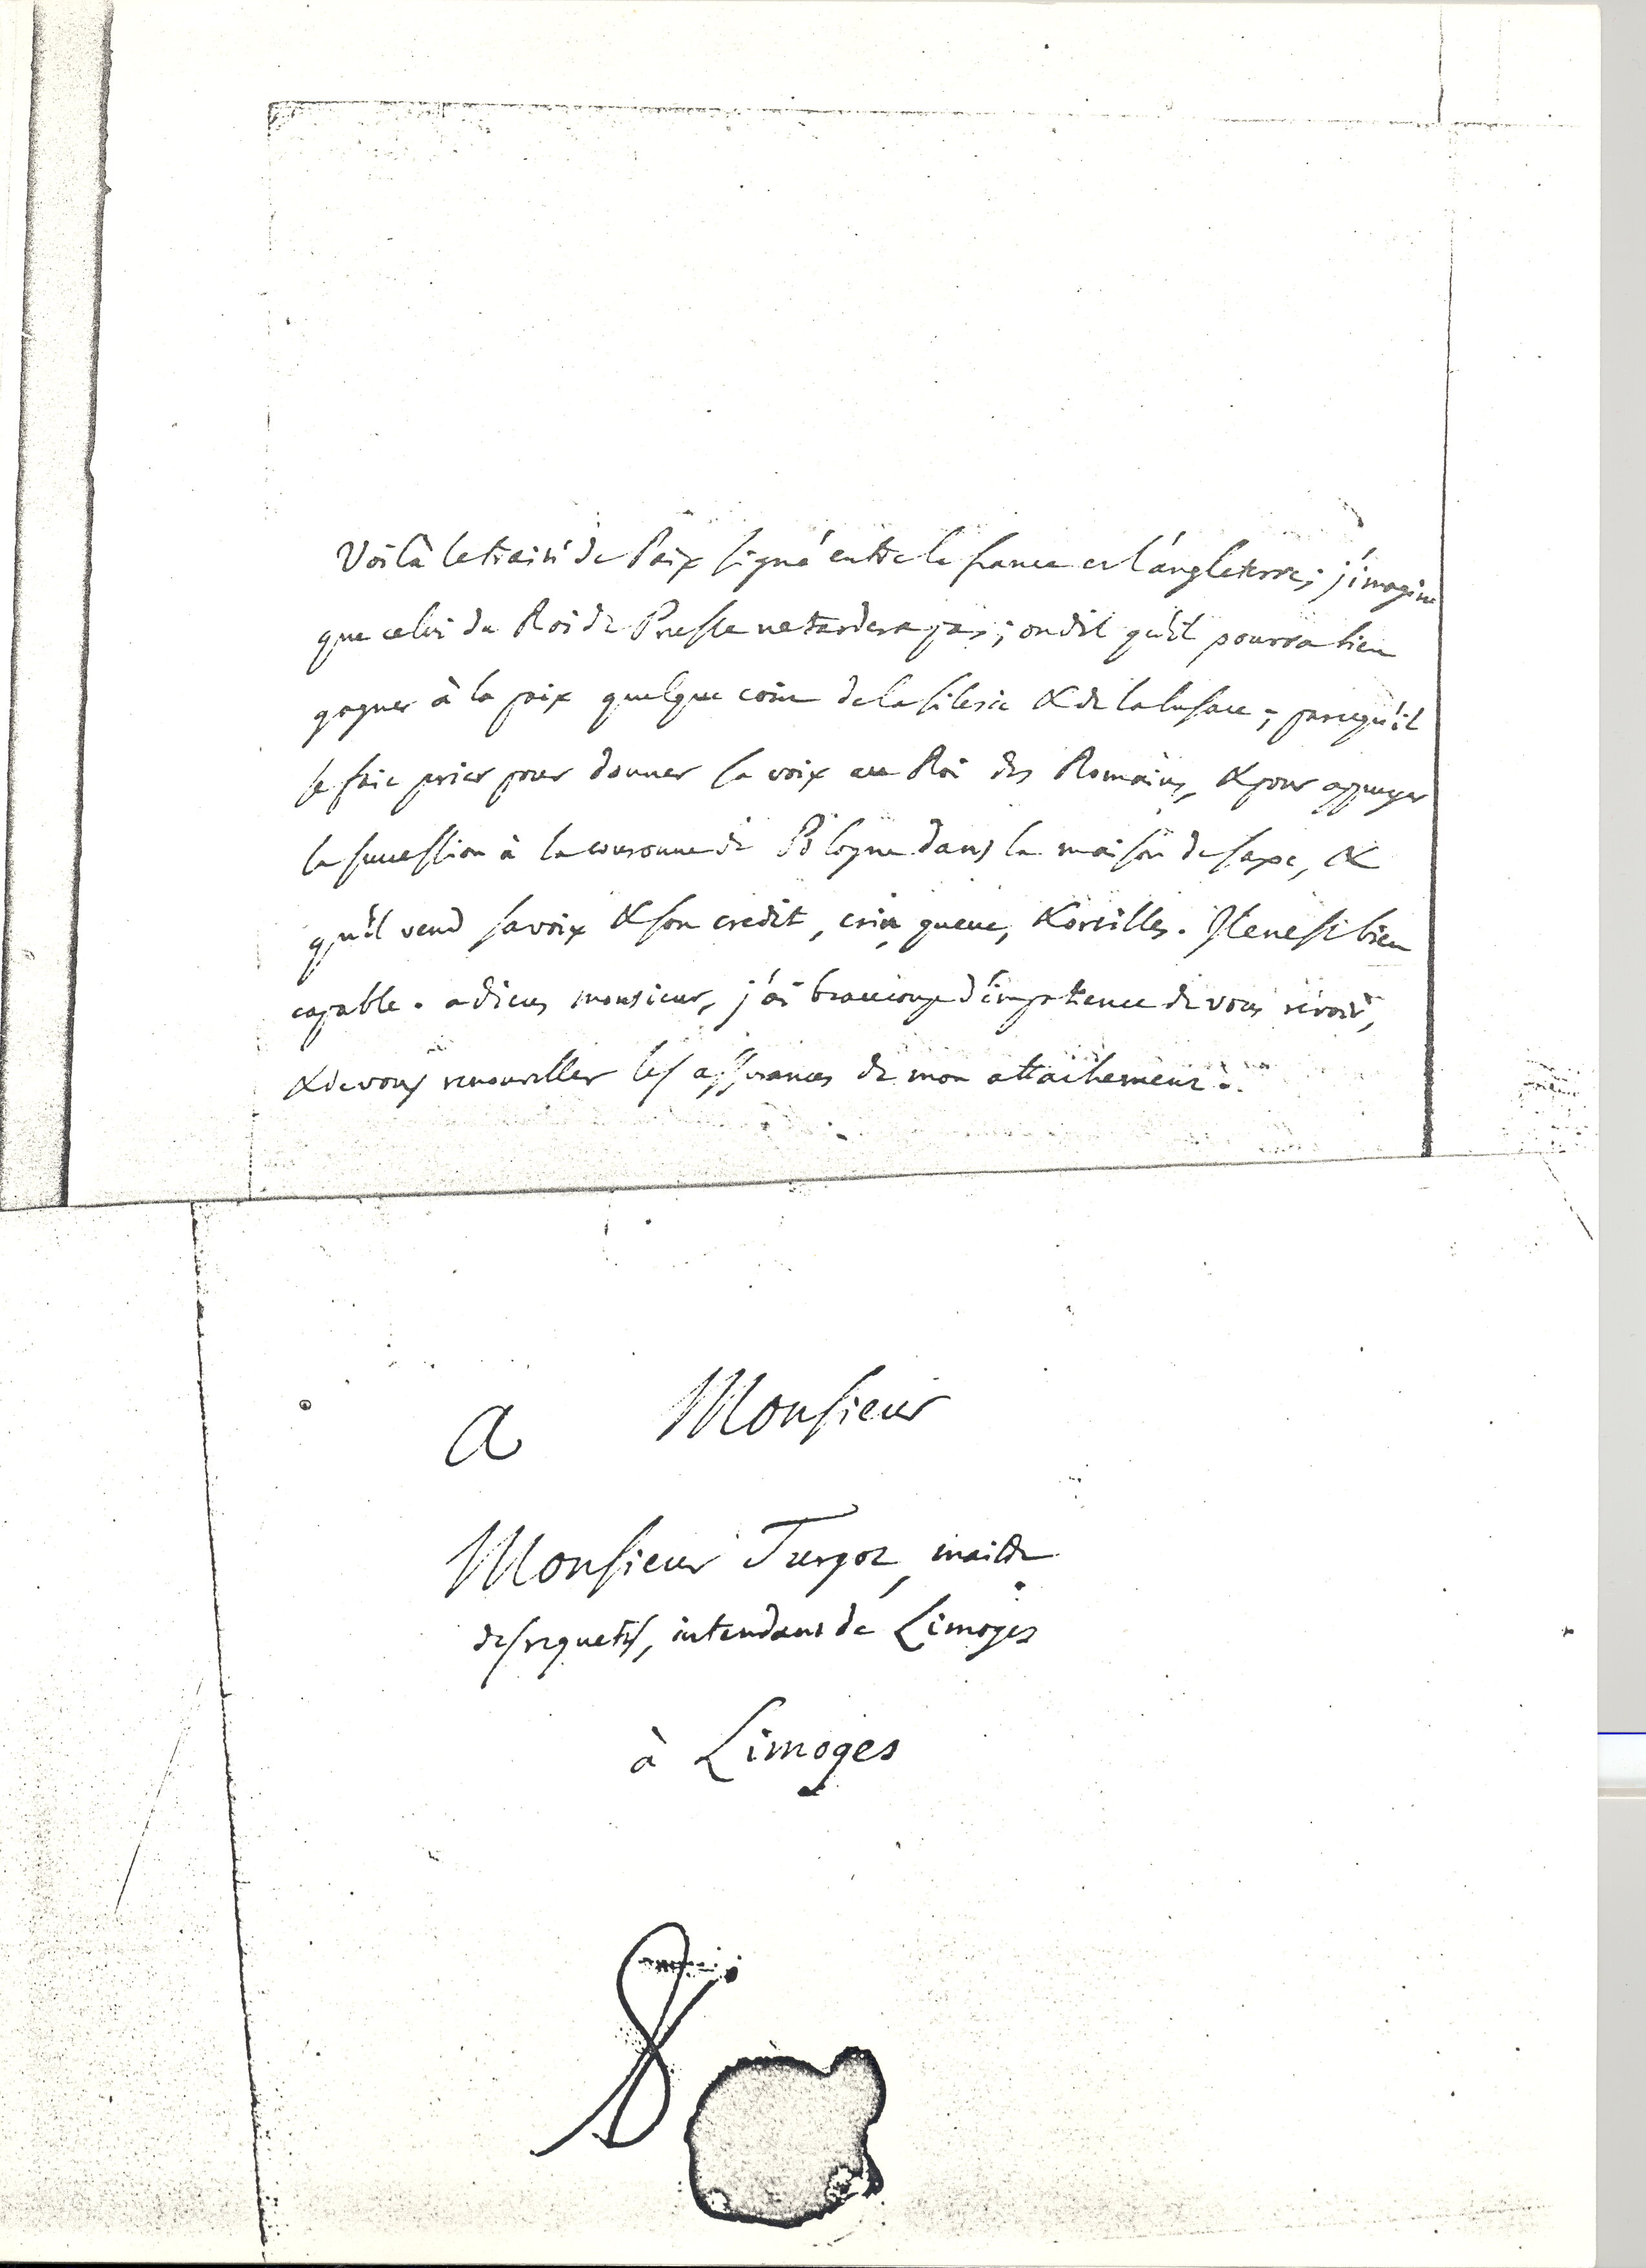 Voilà le traité de Paix signé entre la france et l'angleterre; j'imagine
que celui du Roi de Prusse ne tardera pas; on dit qu'il pourra bien
gagner à la paix quelque coin de la silesie & de la lusace, parcequ'il
se fait prier pour donner sa voix au Roi des Romains, & pour appuyer
la succession à la couronne de Pologne dans la maison de saxe, &
qu'il vend sa voix & son credit, crin, queue, & oreilles. Il en est bien
capable. adieu monsieur, j'ai beaucoup d'impatience de vous revoir,
& de vous renouveller les assurances de mon attachement.
A Monsieur
Monsieur Turgot, maitre
des requetes, intendant de Limoges
à Limoges
8